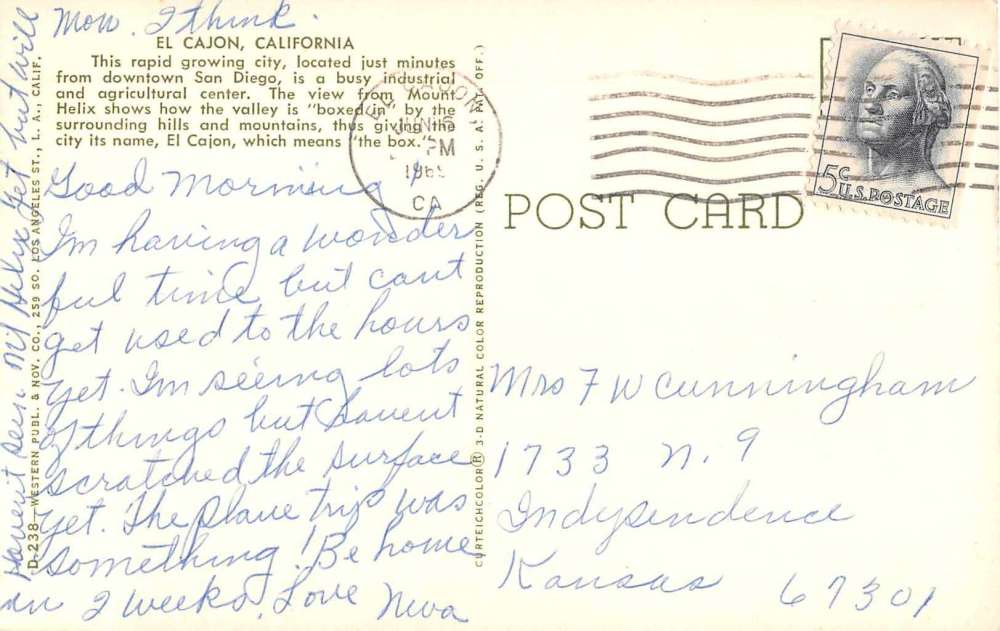 Mon. I think.
EL CAJON, CALIFORNIA
This rapid growing city, located just minutes
from downtown San Diego, is a busy industrial
and agricultural center. The view from Mount
Helix shows how the valley is "boxed in" by the
surrounding hills and mountains, thus giving the
city its name, El Cajon, which means "the box."
Good Morning
I'm having a wonder
ful time but can't
get used to the hours
yet. I'm seeing lots
of things but havent
scratched the surface
yet. The plane trip was
something! Be home
in 2 weeks. Love Neva
Havent seen Mt Helix yet but will
D-238—WESTERN PUBL. & NOV. CO., 259 SO. LOS ANGELES ST., L. A., CALIF.
CURTEICHCOLOR® 3-D NATURAL COLOR REPRODUCTION (REG. U. S. A. PAT. OFF.)
EL CAJON
JUN
PM
CA
5c
U.S. POSTAGE
POST CARD
Mrs F W Cunningham
1733 N. 9
Independence
Kansas 67301